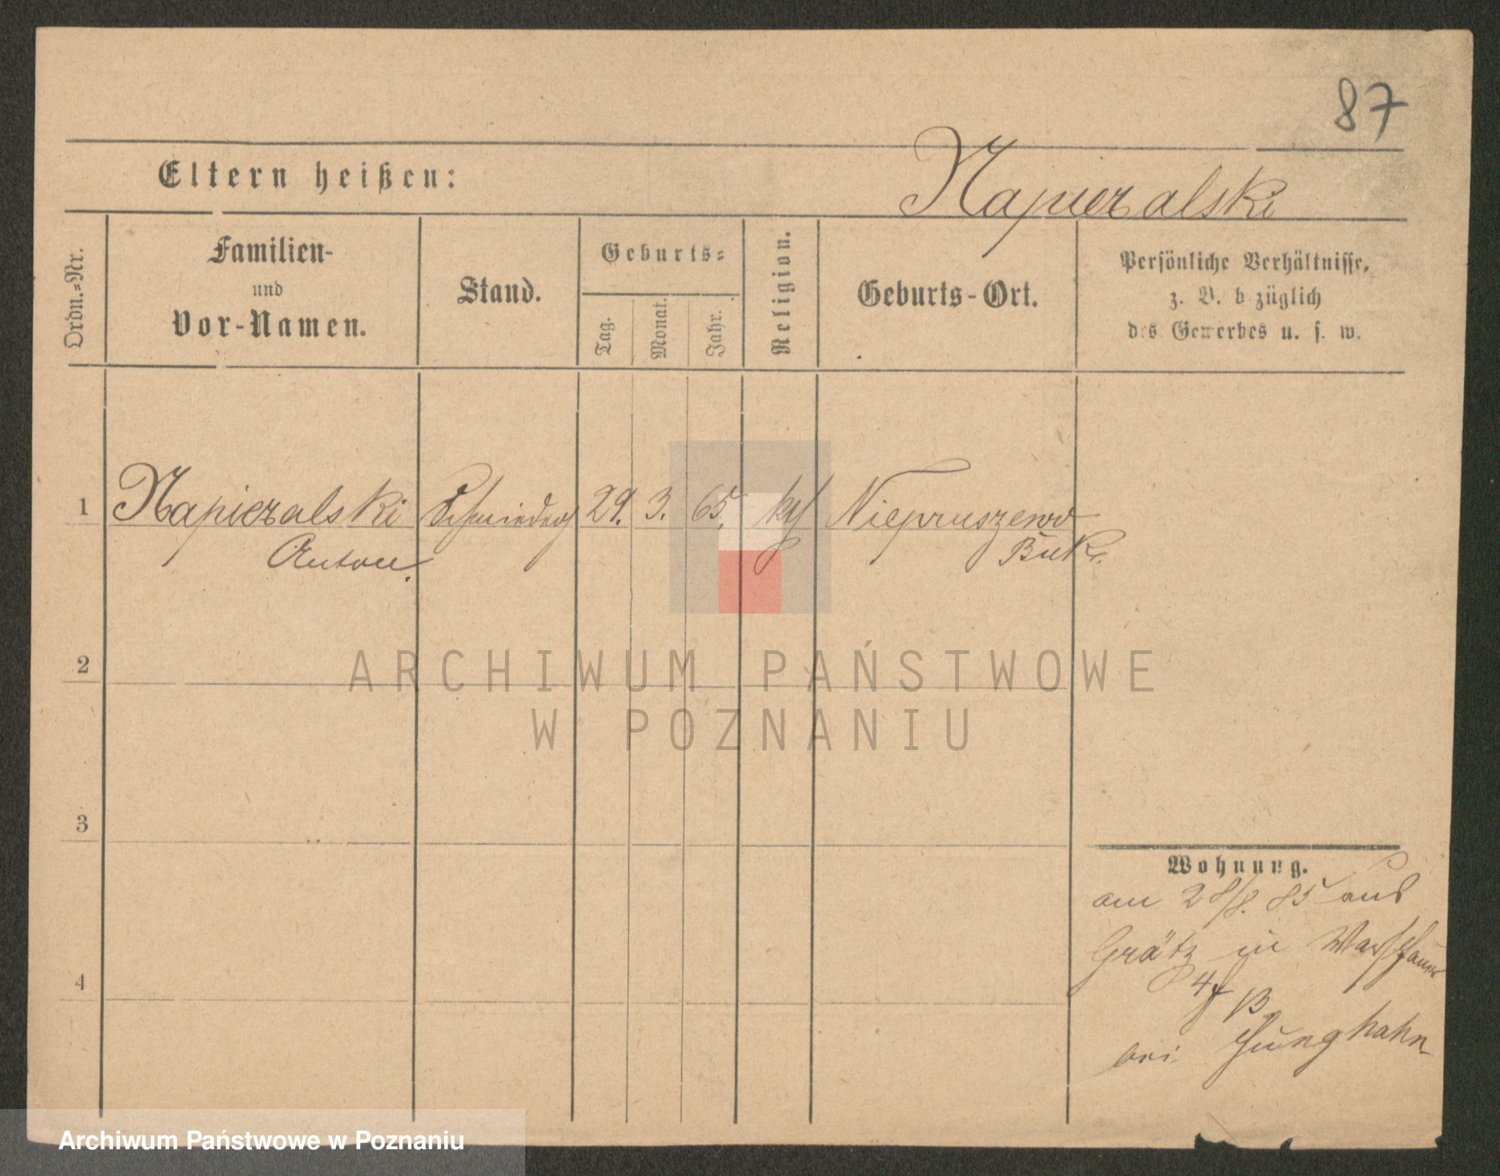 87
Eltern heißen:
Napieralski
Ordn.-Nr.
Familien-
und
Vor-Namen.
Stand.
Geburts-
Tag.
Monat.
Jahr.
Religion.
Geburts-Ort.
Persönliche Verhältnisse,
z. B. bezüglich
des Gewerbes u. s. w.
1 Napieralski 29. 3. 65. Niepruszewo
Anton. Buk.
2
ARCHIWUM PAŃSTWOWE
W POZNANIU
3
Wohnung.
am 28/8. 85 aus
Grätz in
4
bei Junghahn
Archiwum Państwowe w Poznaniu